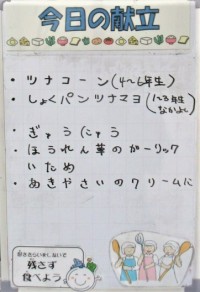 今日の献立
・ツナコーン(4~6年生)
・しょくパンツナマヨ(1~3年生
なかよし)
・ぎゅうにゅう
・ほうれん草のガーリック
いため
・あきやさいのクリームに
好ききらいをしないで
残さず
食べよう。